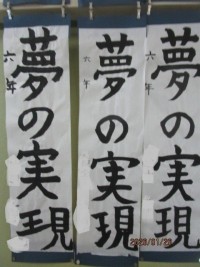 夢の実現
六年
夢の実現
六年
夢の実現
六年